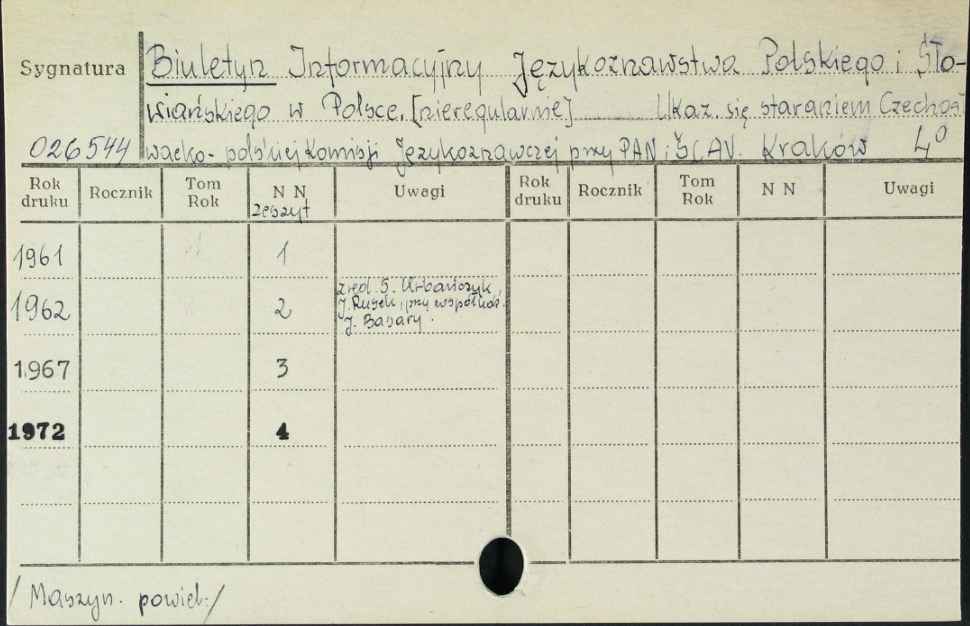 Sygnatura Biuletyn Informacyjny Językoznawstwa Polskiego i Sło-
wiańskiego w Polsce. [nieregularnie] Ukaz. się staraniem Czechosł
026544 wacko-polskiej Komisji Językoznawczej przy PAN i ŠČAV. Kraków 4°
Rok druku Rocznik Tom Rok N N zeszyt Uwagi Rok druku Rocznik Tom Rok N N Uwagi
1961 1
zred. S. Urbańczyk,
1962 2 J. Rusek, przy współud.
J. Basary.
1967 3
1972 4
/ Maszyn. powiel. /